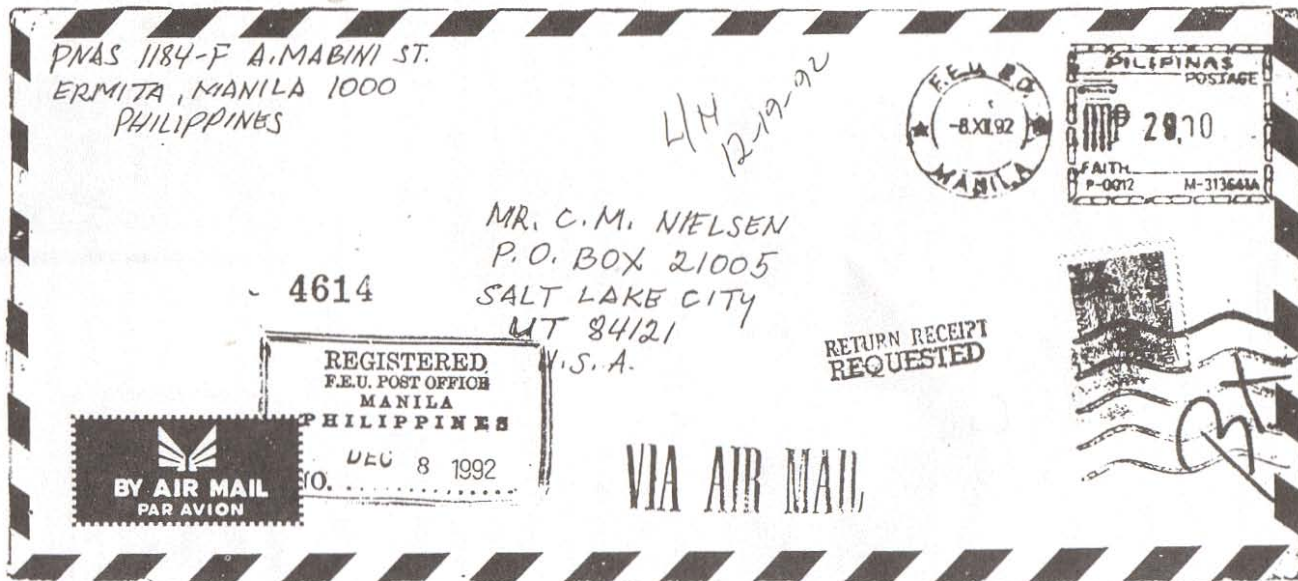 PNAS 1184-F A. MABINI ST.
ERMITA, MANILA 1000
PHILIPPINES
L/H
12-19-92
F.E.U. P.O.
-8.XII.92
MANILA
PILIPINAS
POSTAGE
FAITH
P-0012 M-313641A
MR. C.M. NIELSEN
P.O. BOX 21005
SALT LAKE CITY
UT 84121
U.S.A.
4614
REGISTERED
F.E.U. POST OFFICE
MANILA
PHILIPPINES
DEC 8 1992
NO.
RETURN RECEIPT
REQUESTED
BY AIR MAIL
PAR AVION
VIA AIR MAIL